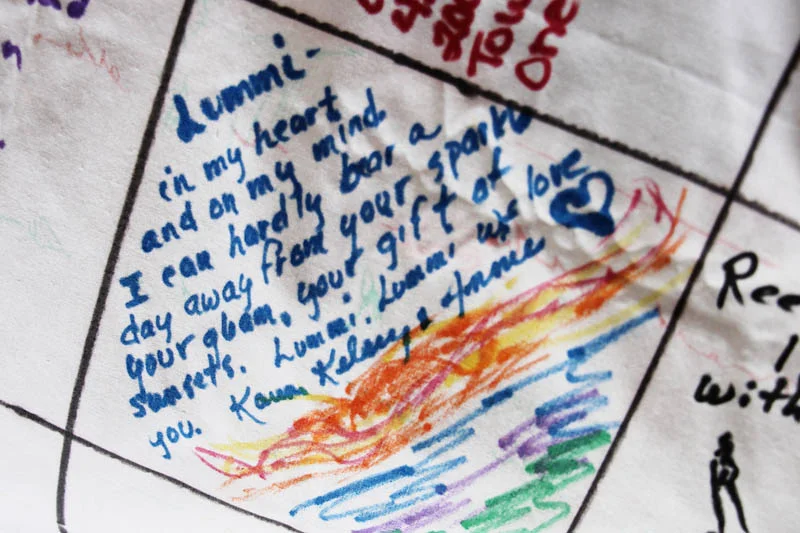 Lummi-
in my heart
and on my mind
I can hardly bear a
day away from your sparkle
your gleam, your gift of
sunsets. Lummi. Lummi we love
you. Karen Kelsey &
One
with